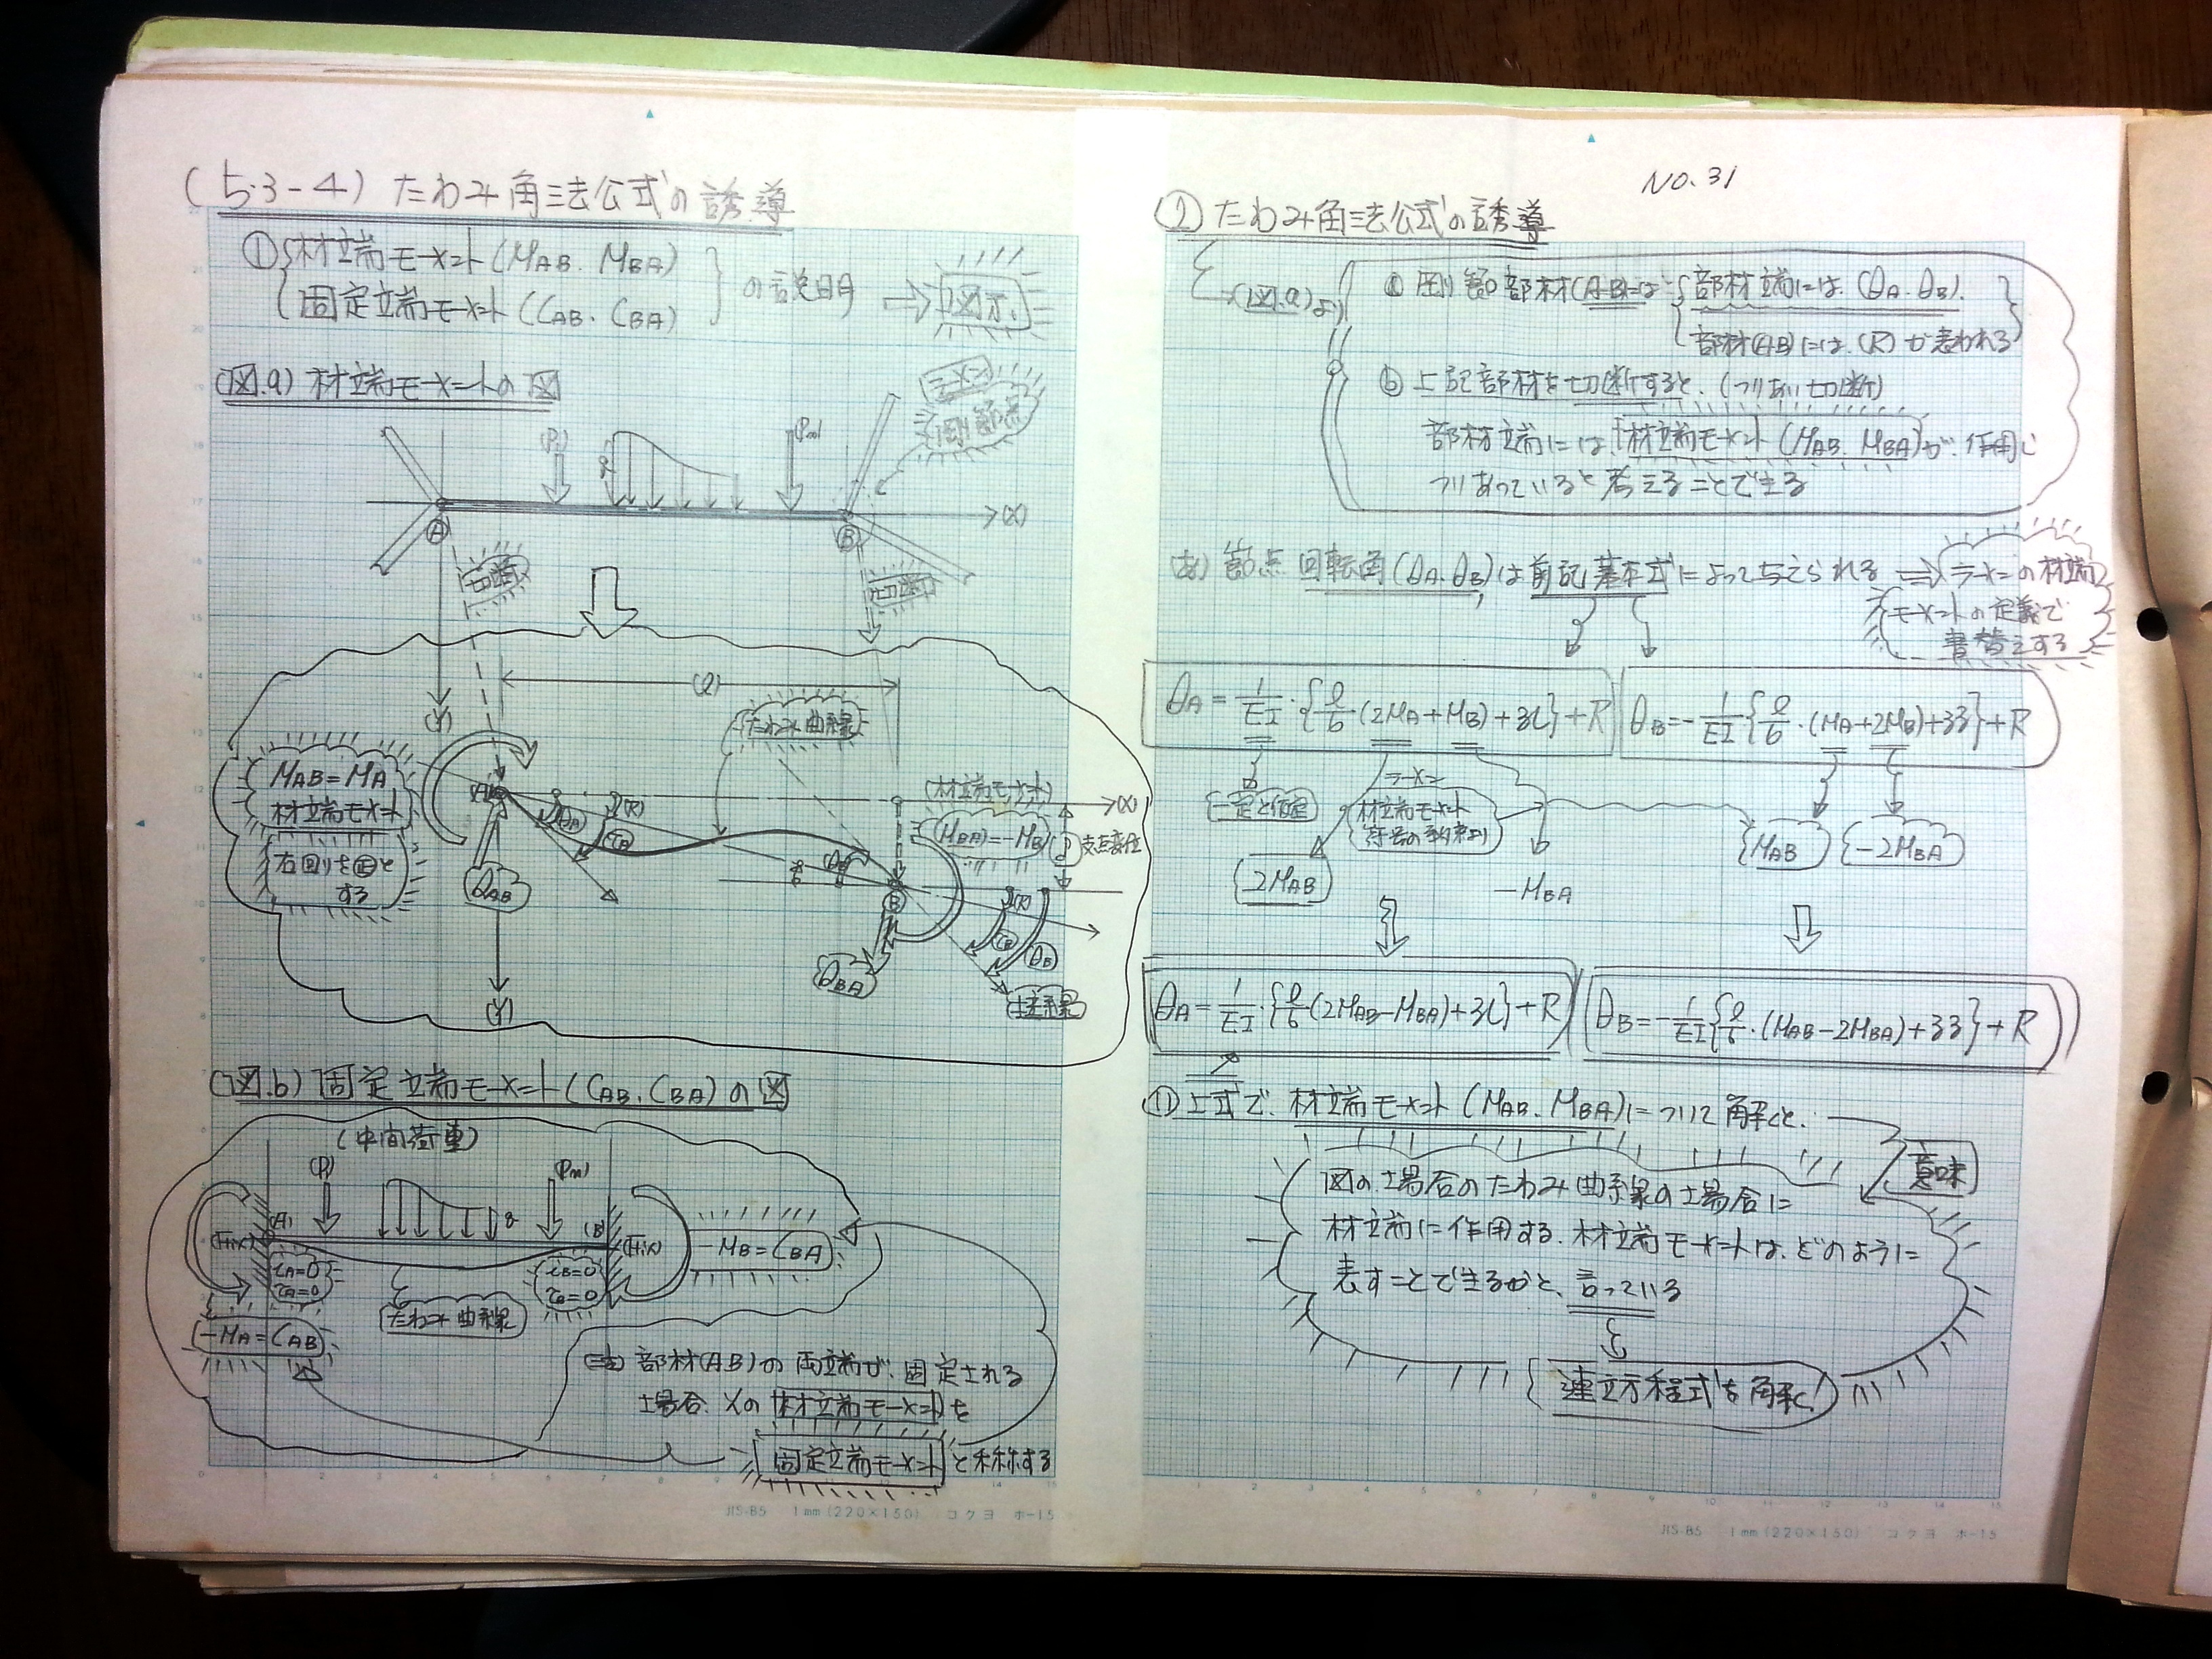 (5・3-4) たわみ角法公式の誘導
① 材端モーメント (MAB. MBA)
固定端モーメント (CAB. CBA)
の説明 ⇒ 図示.
(図.a) 材端モーメントの図
ラーメン
剛節点
(P1)
(Pm)
(X)
A
B
切断
切断
(Y)
(l)
たわみ曲線
MAB=MA
材端モーメント
右回りを㊉と
する
(材端モーメント)
(X)
(MBA)=-MB
支点変位
(R)
θA
τA
QAB
QBA
B
(R)
τB
θB
接線
(Y)
(図.b) 固定端モーメント (CAB. CBA) の図
(中間荷重)
(P1)
(Pm)
(A)
(B)
(Fix)
(Fix)
-MB=CBA
τA=0
τB=0
たわみ曲線
-MA=CAB
(注) 部材(AB)の両端が.固定される
場合.その 材端モーメント を
固定端モーメント と称する
JIS-B5 1mm(220×150) コクヨ ホ-15
NO.31
② たわみ角法公式の誘導
(図.a)より
ⓐ 剛節部材(AB)には 部材端には.(θA.θB).
部材(AB)には.(R)が表われる
ⓑ 上記部材を切断すると.(つりあい切断)
部材端には 材端モーメント (MAB. MBA)が.作用し
つりあっていると考えることできる
(あ) 節点回転角(θA.θB)は前記基本式によって与えられる ⇒ ラーメンの材端
モーメントの定義で
書替えする
θA = 1/EI・{l/6・(2MA+MB)+3l}+R
θB=-1/EI{l/6・(MA+2MB)+33}+R
一定と仮定
ラーメン
材端モーメント
符号の約束より
2MAB
-MBA
MAB
-2MBA
θA = 1/EI・{l/6(2MAB-MBA)+3l}+R
θB=-1/EI{l/6・(MAB-2MBA)+33}+R
(1) 上式で.材端モーメント (MAB. MBA)について解くと.
意味
図の.場合のたわみ曲線の場合に
材端に作用する.材端モーメントは.どのように
表すことできるかと、言っている
連立方程式を解く!
JIS-B5 1mm(220×150) コクヨ ホ-15